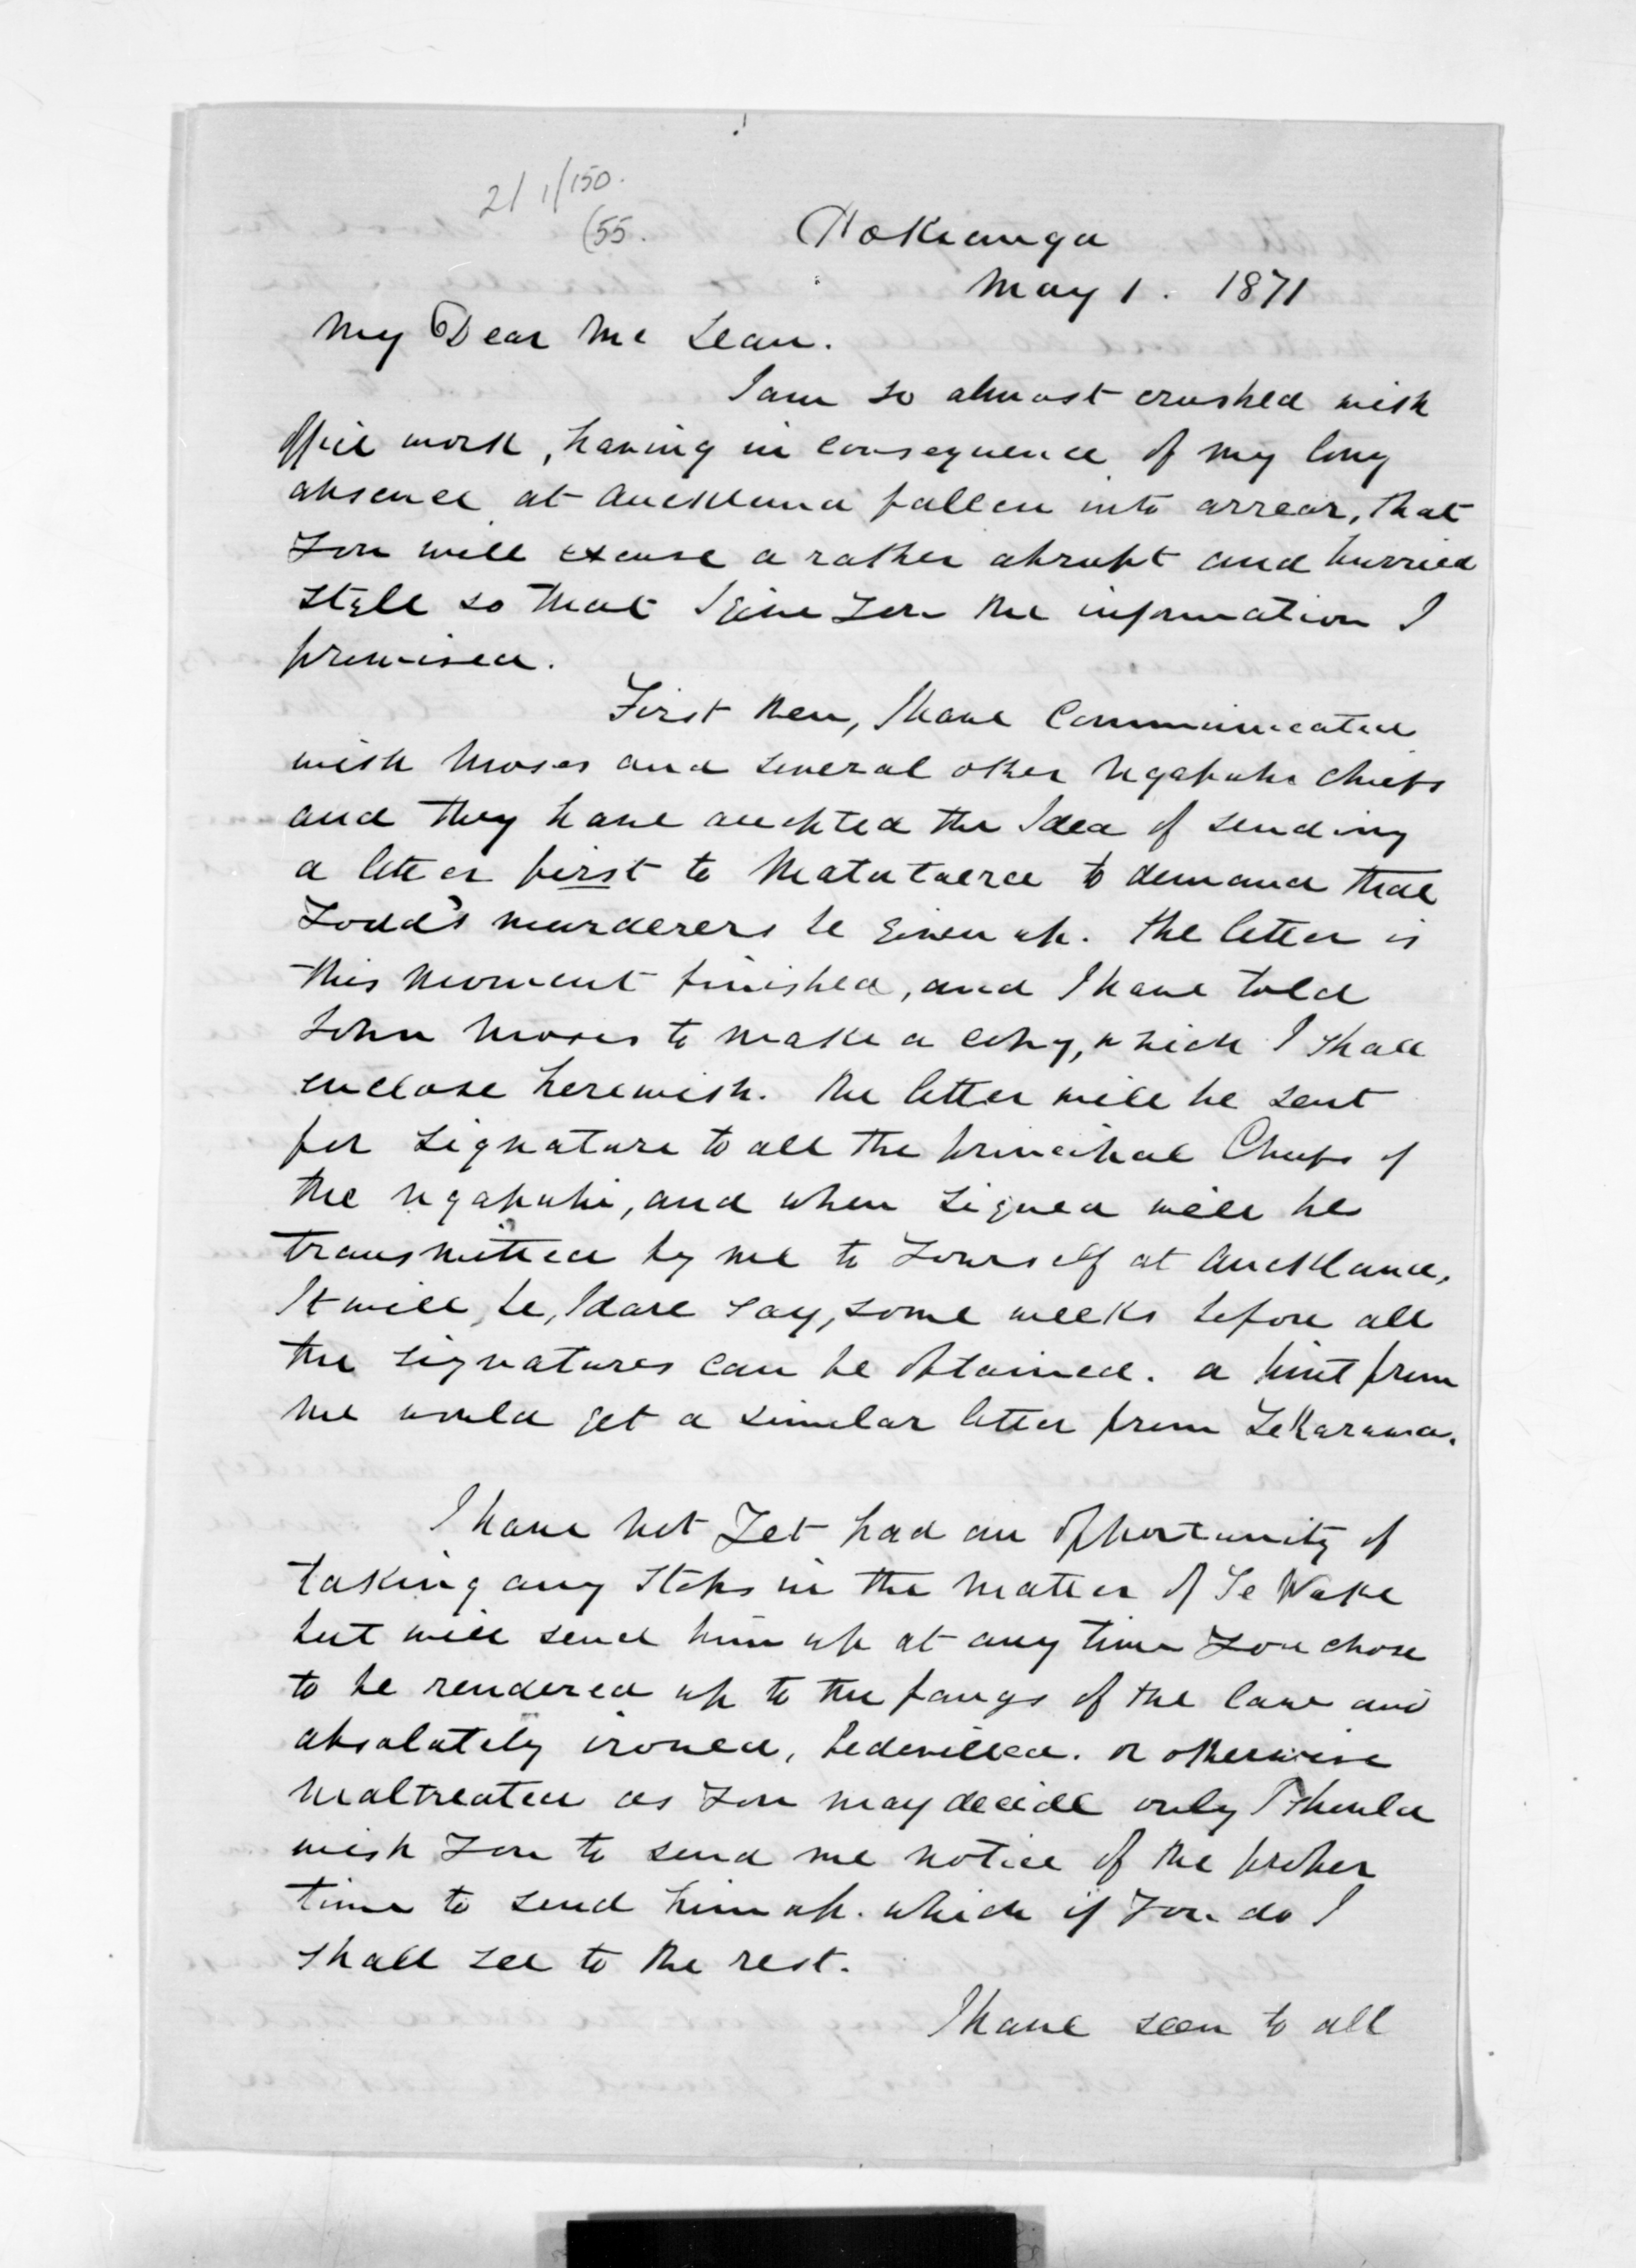 2/ 1/150.
(55.
Hokianga
May 1. 1871
My Dear Mc Lean.
I am so almost crushed with
office work, having in consequence of my long
absence at Auckland fallen into arrear, that
you will excuse a rather abrupt and hurried
style so that I give you the information I
promised.
First then, I have communicated
with Moses and several other Ngapuhi chiefs
and they have accepted the Idea of sending
a letter first to Matutaera to demand that
Todd's murderers be given up. The letter is
this moment finished, and I have told
John Moses to make a copy, which I shall
enclose herewith. The letter will be sent
for signature to all the principal Chiefs of
the Ngapuhi, and when signed will be
transmitted by me to yourself at Auckland.
It will, be, I dare say, some weeks before all
the signatures can be obtained. A hint from
me would get a similar letter from Te Rarawa.
I have not yet had an opportunity of
taking any steps in the matter of Te Wake
but will send him up at any time you chose
to be rendered up to the fangs of the law and
absolutely ironed, bedevilled. or otherwise
maltreated as you may decide only I should
wish you to send me notice of the proper
time to send him up. which if you do I
shall see to the rest.
I have seen to all